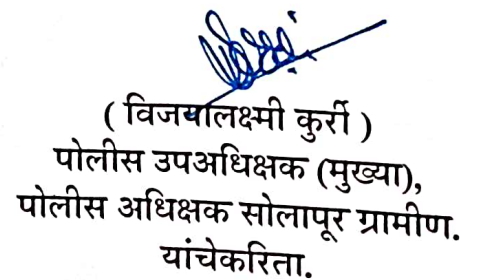 ( विजयालक्ष्मी कुर्री )
पोलीस उपअधिक्षक (मुख्या),
पोलीस अधिक्षक सोलापूर ग्रामीण.
यांचेकरिता.